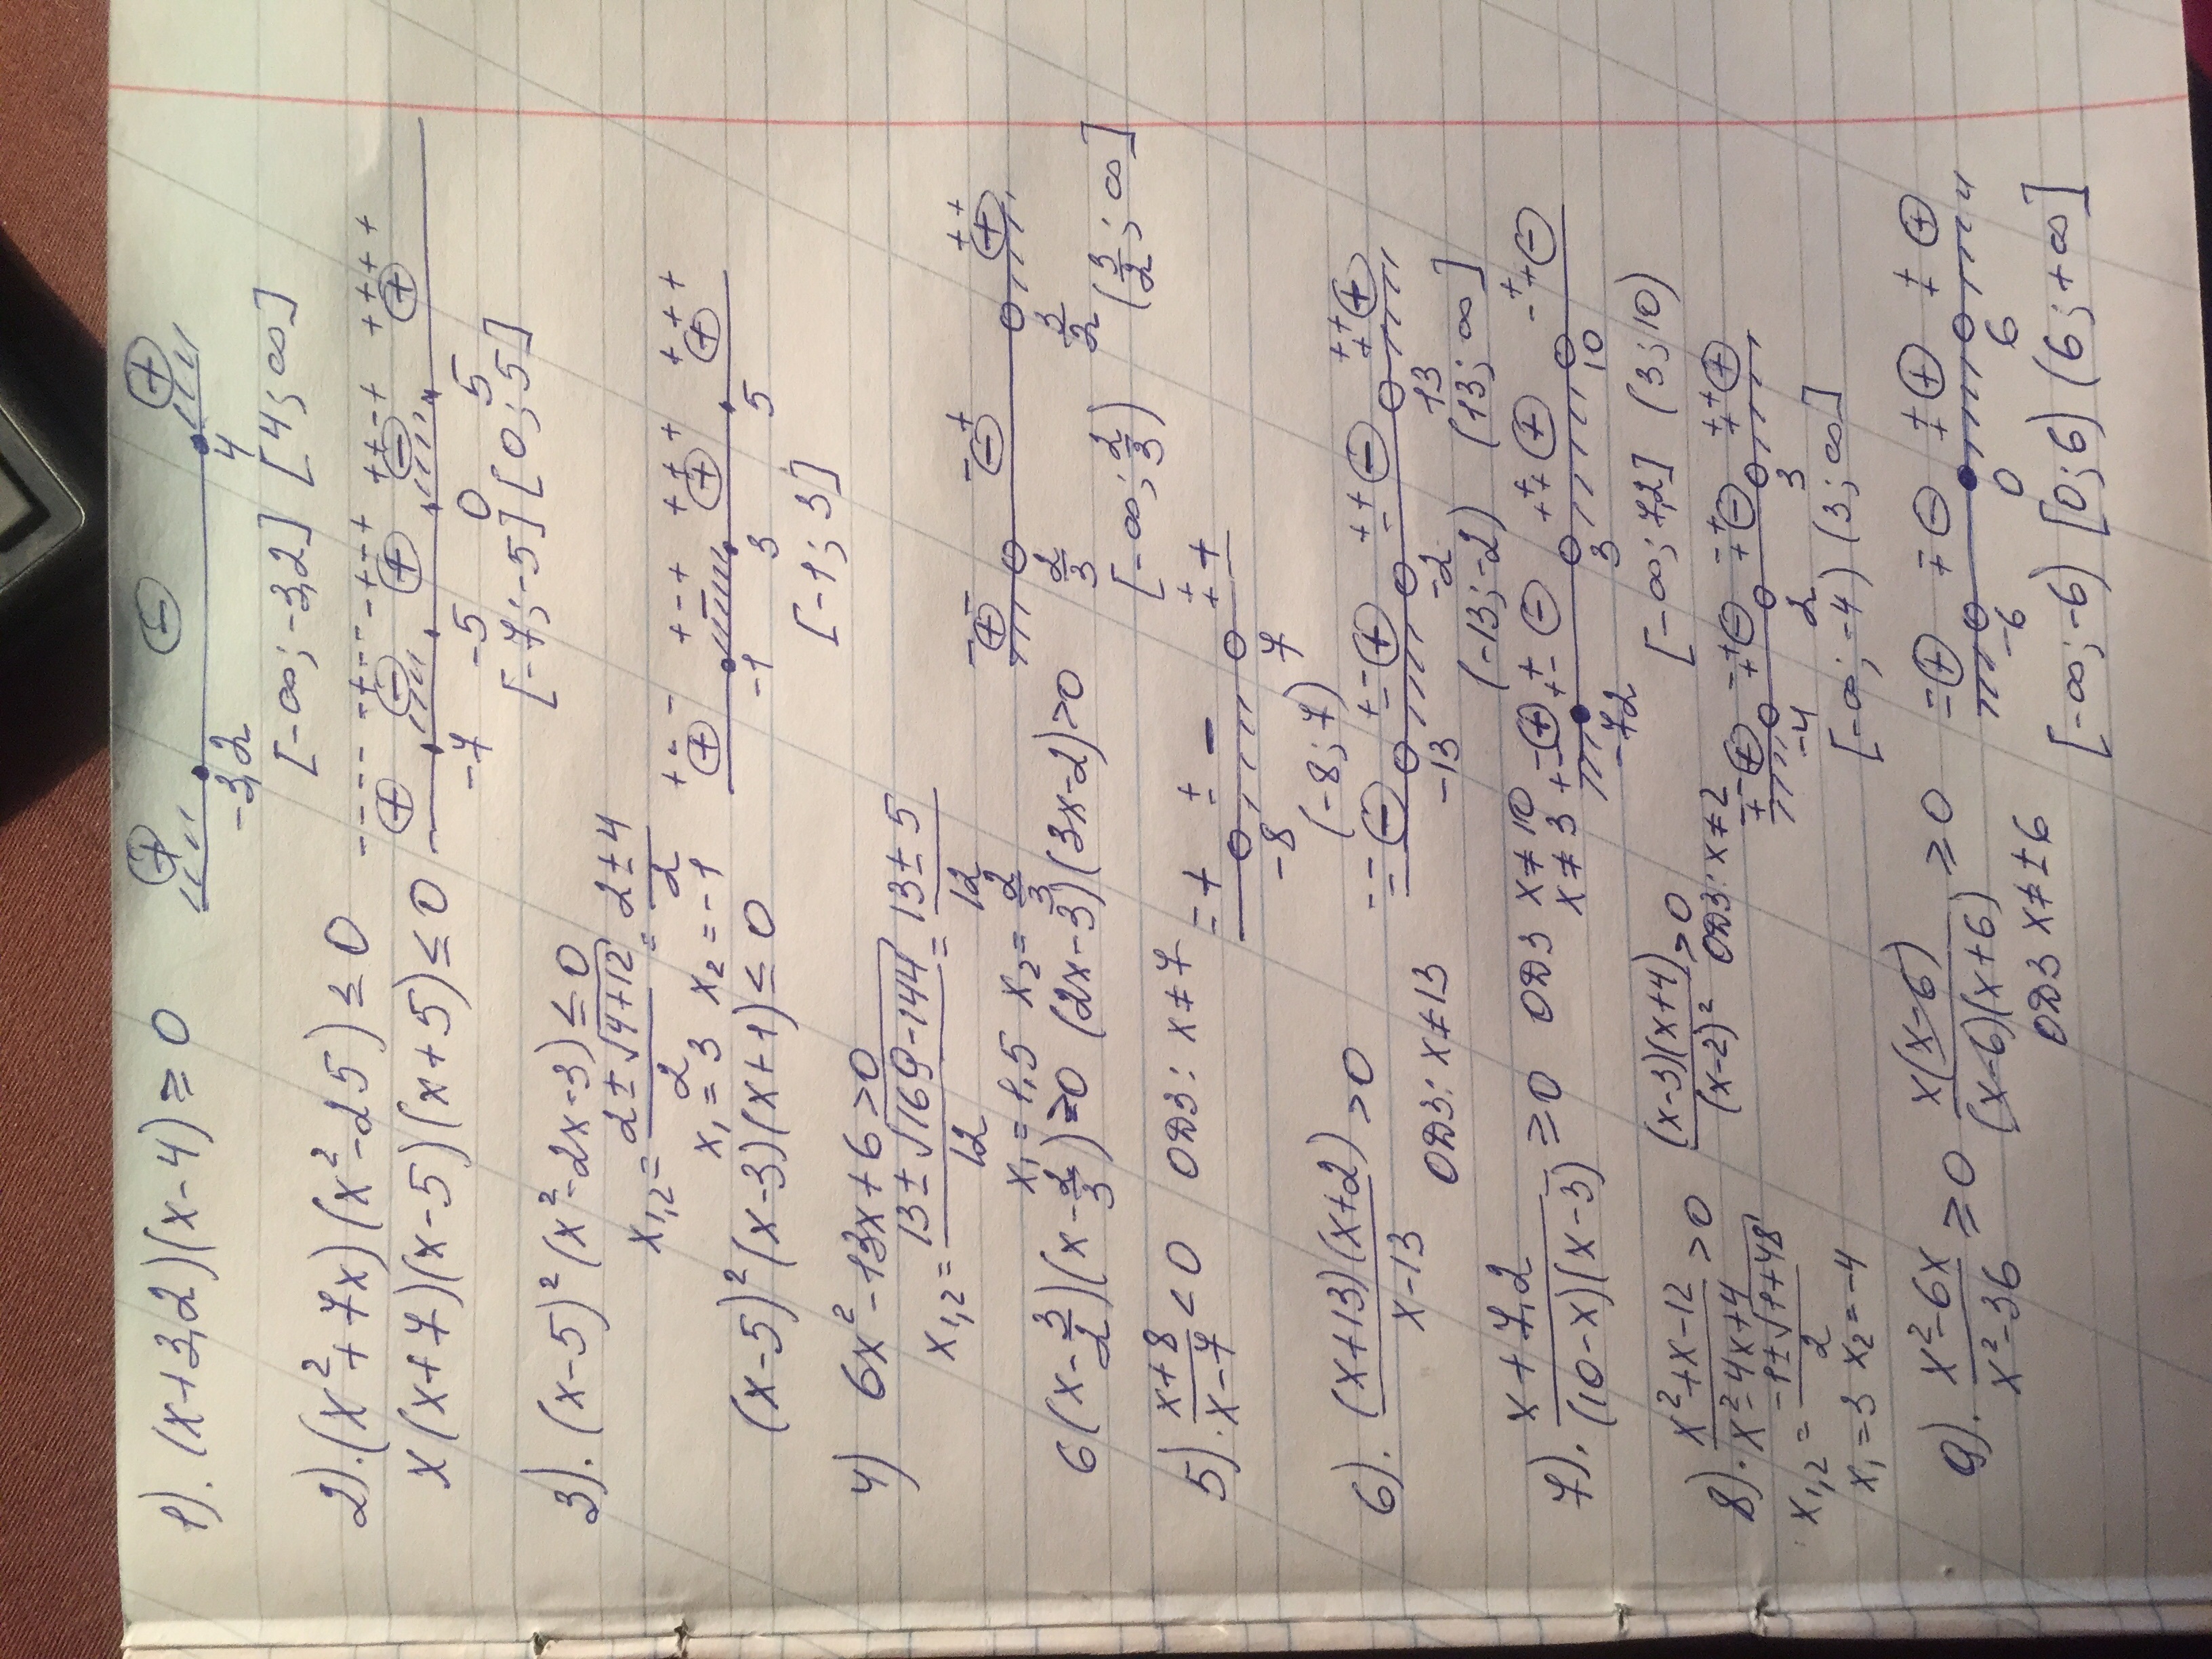 1). (x+3,2)(x-4) ≥ 0
⊕ ⊖ ⊕
-3,2 4
[-∞; -3,2] [4; ∞]
2). (x²+7x)(x²-25) ≤ 0
x(x+7)(x-5)(x+5) ≤ 0
---- ---+ --++ ++-+ ++++
⊕ ⊖ ⊕ ⊖ ⊕
-7 -5 0 5
[-7; -5] [0; 5]
3). (x-5)² (x²-2x-3) ≤ 0
x₁,₂ = (2±√(4+12))/2 = (2±4)/2
x₁ = 3 x₂ = -1
(x-5)² (x-3)(x+1) ≤ 0
+-- +-+ +++ +++
⊕ - ⊕ ⊕
-1 3 5
[-1; 3]
4) 6x²-13x+6 > 0
x₁,₂ = (13±√(169-144))/12 = (13±5)/12
x₁ = 1,5 x₂ = 2/3
6(x-3/2)(x-2/3) > 0 (2x-3)(3x-2) > 0
-- -+ ++
⊕ ⊖ ⊕
2/3 3/2
[-∞; 2/3) (3/2; ∞]
5). (x+8)/(x-7) < 0 ОДЗ: x≠7
+ - +
-8 7
(-8; 7)
6). ((x+13)(x+2))/(x-13) > 0
ОДЗ: x≠13
⊖ ⊕ ⊖ ⊕
-13 -2 13
(-13; -2) (13; ∞]
7). (x+7,2)/((10-x)(x-3)) ≥ 0 ОДЗ x≠10
x≠3
⊕ ⊖ ⊕ ⊖
-7,2 3 10
[-∞; -7,2] (3; 10)
8). (x²+x-12)/(x²-4x+4) > 0 ((x-3)(x+4))/(x-2)² > 0
ОДЗ: x≠2
x₁,₂ = (-1±√(1+48))/2
x₁ = 3 x₂ = -4
⊕ ⊖ ⊖ ⊕
-4 2 3
[-∞; -4) (3; ∞]
9). (x²-6x)/(x²-36) ≥ 0 (x(x-6))/((x-6)(x+6)) ≥ 0
ОДЗ x≠±6
⊕ ⊖ ⊕ ⊕
-6 0 6
[-∞; -6) [0; 6) (6; +∞]